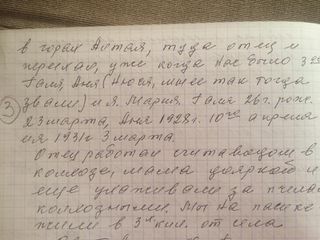 в горах Алтая, туда отец и
переехал, уже когда нас было 3 ое
Галя, Аня (Нюся, мнее так тогда
звали) и я. Мария. Галя 26 г. рож.
3
23 марта, Аня 1928 г. 10го апреля
и я 1931 г 3 марта.
Отец работал считаводом в
колхозе, мама дояркой и
еще ухаживали за пчелами
колхозными. Мы на пасике
жили в 3х ким. от села